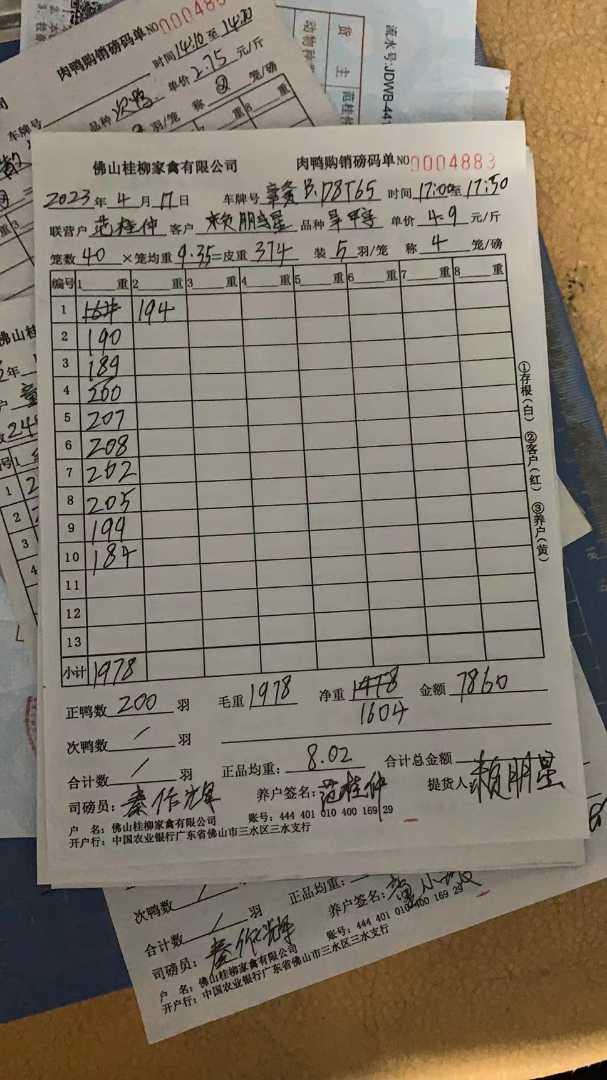 肉鸭购销磅码单NO 0004883
时间14:10至14:20
车牌号 品种 次鸭 单价2.75元/斤
流水号:JDWB-441
货主 范桂仲
动物种
佛山桂柳家禽有限公司 肉鸭购销磅码单NO 0004883
2023年4月17日 车牌号 B.D8T65 时间17:00至17:50
联营户 范桂仲 客户 赖朋星 品种 单价4.9元/斤
笼数40×笼均重9.35=皮重374 装5羽/笼 称4笼/磅
编号 1 重 2 重 3 重 4 重 5 重 6 重 7 重 8 重
1 194
2 190
3 189
4 200
5 207
6 208
7 202
8 205
9 199
10 184
11
12
13
小计 1978
正鸭数 200 羽 毛重 1978 净重 1604 金额 7860
次鸭数 / 羽
合计数 / 羽 正品均重: 8.02 合计总金额
司磅员: 秦作辉 养户签名: 范桂仲 提货人 赖朋星
户 名: 佛山桂柳家禽有限公司 账号: 444 401 010 400 169 29
开户行: 中国农业银行广东省佛山市三水区三水支行
①存根(白) ②客户(红) ③养户(黄)
次鸭数 / 羽 正品均重:
合计数 / 羽 养户签名:
司磅员: 秦作辉
户 名: 佛山桂柳家禽有限公司 账号: 444 401 010 400 169 29
开户行: 中国农业银行广东省佛山市三水区三水支行